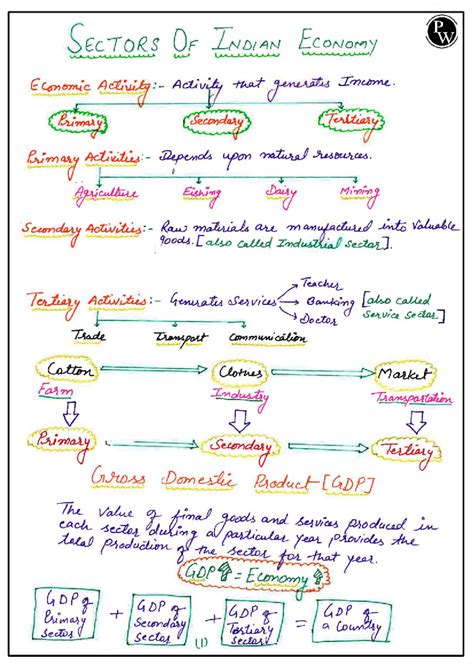 PW
SECTORS OF INDIAN ECONOMY
Economic Activity:- Activity that generates Income.
Primary Secondary Tertiary
Primary Activities:- Depends upon natural resources.
Agriculture Fishing Dairy Mining
Secondary Activities:- Raw materials are manufactured into valuable
goods. [also called Industrial Sector].
Teacher
Tertiary Activities:- Generates Services Banking [also called
Doctor service sector]
Trade Transport Communication
Cotton Clothes Market
Farm Industry Transportation
Primary Secondary Tertiary
Gross Domestic Product [GDP]
The value of final goods and services produced in
each sector during a particular year provides the
total production of the sector for that year.
GDP⇑ = Economy⇑
GDP of Primary sector + GDP of Secondary sector + GDP of Tertiary sector = GDP of a Country
(1)